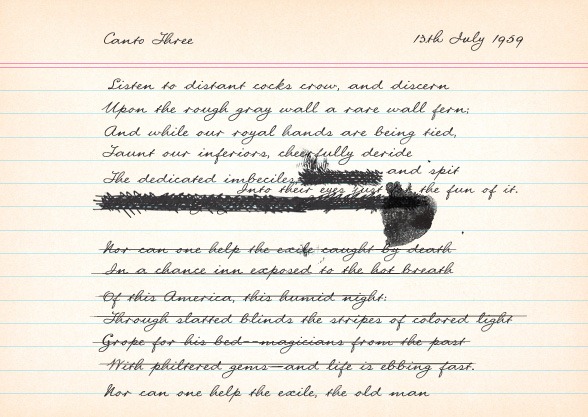 Canto Three 13th July 1959
Listen to distant cocks crow, and discern
Upon the rough gray wall a rare wall fern;
And while our royal hands are being tied,
Taunt our inferiors, cheerfully deride
The dedicated imbeciles, and spit
Into their eyes just for the fun of it.
Nor can one help the exile caught by death
In a chance inn exposed to the hot breath
Of this America, this humid night:
Through slatted blinds the stripes of colored light
Grope for his bed--magicians from the past
With philtered gems—and life is ebbing fast.
Nor can one help the exile, the old man